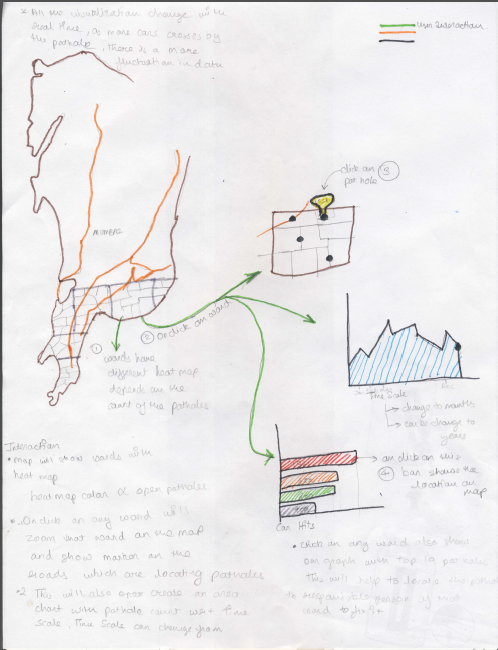 * All the visualization change with the
real time, as more cars crosses by
the pothole, there is a more
fluctuation in data
User Interaction
click on
pot hole ③
MUMBAI
② On click on ward
① wards have
different heat map
depends on the
count of the potholes
Time Scale
→ change to months
→ can be change to
years
→ on click on this
④ bar shows the
location on
map
Car Hits
Interaction
• Map will show wards with
heat map
heat map color α open potholes
• 1. On click on any ward will
zoom that ward on the map
and show marker on the
roads which are locating potholes
• 2 This will also open create an area
chart with pothole count w.r.t time
scale, Time scale can change from
• click on any ward also show
bar graph with top 10 potholes
This will help to locate the pothole